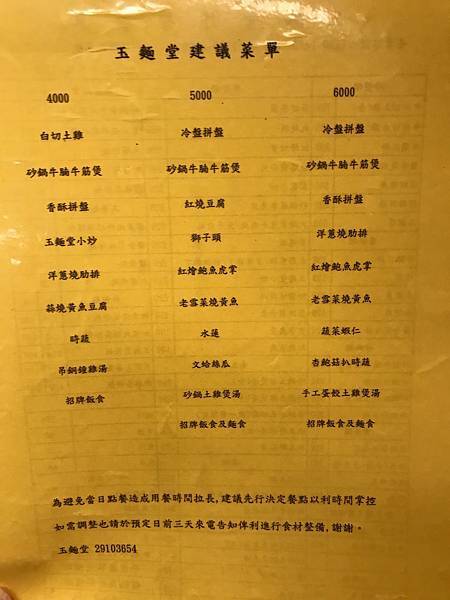 玉麵堂建議菜單
4000 5000 6000
白切土雞 冷盤拼盤 冷盤拼盤
砂鍋牛腩牛筋煲 砂鍋牛腩牛筋煲 砂鍋牛腩牛筋煲
香酥拼盤 紅燒豆腐 香酥拼盤
玉麵堂小炒 獅子頭 洋蔥燒肋排
洋蔥燒肋排 紅燴鮑魚虎掌 紅燴鮑魚虎掌
蒜燒黃魚豆腐 老雪菜燒黃魚 老雪菜燒黃魚
時蔬 水蓮 蔬菜蝦仁
吊鍋鐘雞湯 文蛤絲瓜 杏鮑菇扒時蔬
招牌飯食 砂鍋土雞煲湯 手工蛋餃土雞煲湯
招牌飯食及麵食 招牌飯食及麵食
為避免當日點餐造成用餐時間拉長,建議先行決定餐點以利時間掌控
如需調整也請於預定日前三天來電告知俾利進行食材整備,謝謝。
玉麵堂 29103654